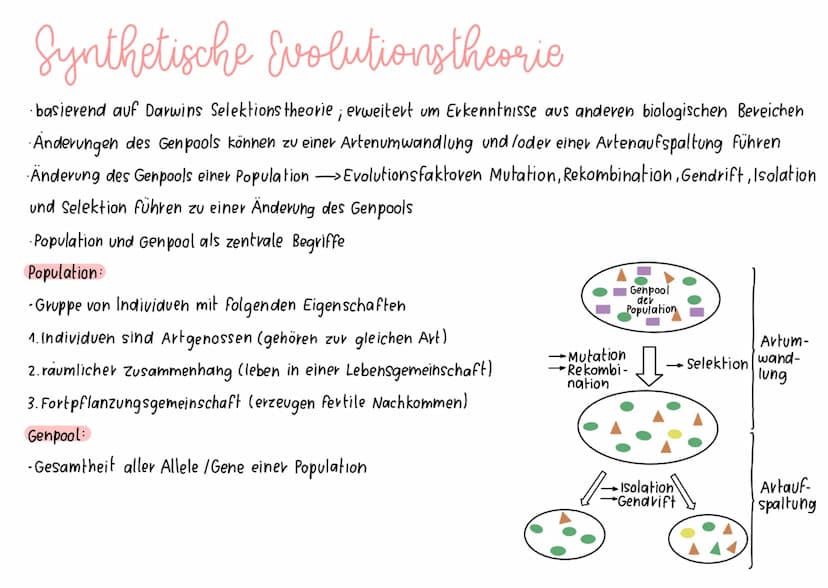 Synthetische Evolutionstheorie
· basierend auf Darwins Selektionstheorie ; erweitert um Erkenntnisse aus anderen biologischen Bereichen
· Änderungen des Genpools können zu einer Artenumwandlung und/oder einer Artenaufspaltung führen
· Änderung des Genpools einer Population → Evolutionsfaktoren Mutation, Rekombination, Gendrift, Isolation
und Selektion führen zu einer Änderung des Genpools
· Population und Genpool als zentrale Begriffe
Population:
- Gruppe von Individuen mit folgenden Eigenschaften
1. Individuen sind Artgenossen (gehören zur gleichen Art)
2. räumlicher Zusammenhang (leben in einer Lebensgemeinschaft)
3. Fortpflanzungsgemeinschaft (erzeugen fertile Nachkommen)
Genpool:
- Gesamtheit aller Allele /Gene einer Population
Genpool
der
Population
→ Mutation
→ Rekombi-
nation
→ Selektion
Artum-
wand-
lung
→ Isolation
→ Gendrift
Artauf-
spaltung